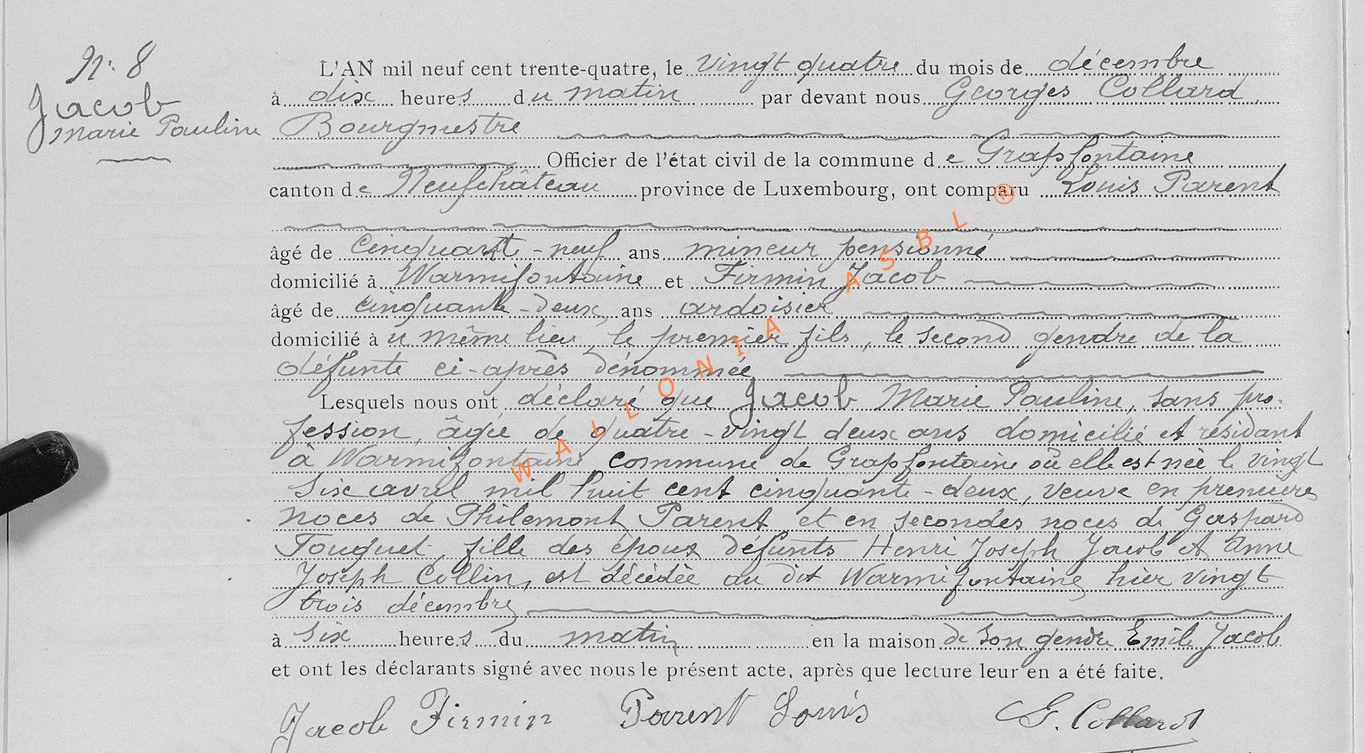 N° 8
Jacob
Marie Pauline
L'AN mil neuf cent trente-quatre, le vingt quatre du mois de décembre
à dix heures du matin par devant nous Georges Collard,
Bourgmestre
Officier de l'état civil de la commune de Grapfontaine
canton de Neufchâteau province de Luxembourg, ont comparu Louis Parent
âgé de cinquante-neuf ans mineur pensionné
domicilié à Warmifontaine et Firmin Jacob
âgé de cinquante-deux ans ardoisier
domicilié au même lieu, le premier fils, le second gendre de la
défunte ci-après dénommée
Lesquels nous ont déclaré que Jacob Marie Pauline, sans pro-
fession, âgée de quatre-vingt deux ans domicilié et résidant
à Warmifontaine commune de Grapfontaine où elle est née le vingt
six avril mil huit cent cinquante-deux, veuve en premières
noces de Philemont Parent et en secondes noces de Gaspard
Fouquet, fille des époux défunts Henri Joseph Jacob et Anne
Joseph Collin, est décédée au dit Warmifontaine hier vingt
trois décembre
à six heures du matin en la maison de son gendre Emile Jacob
et ont les déclarants signé avec nous le présent acte, après que lecture leur en a été faite.
Jacob Firmin Parent Louis G. Collard
WALLONIA ASBL ®